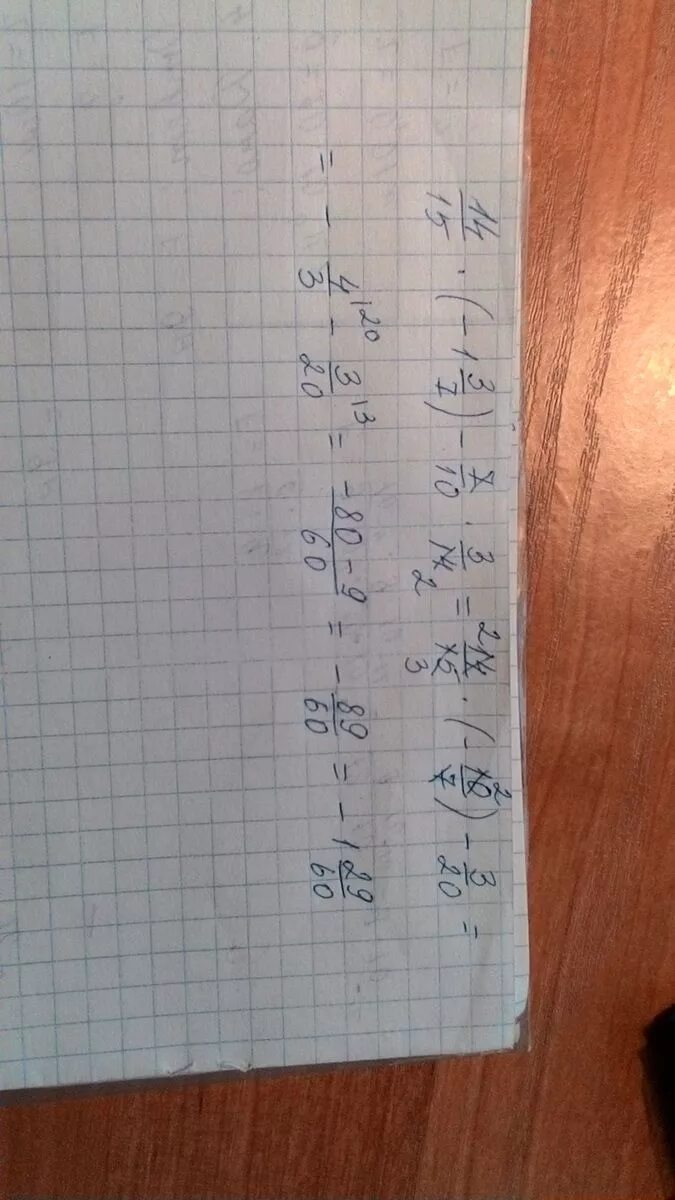 14/15 · (-1 3/7) - 7/10 · 3/14 2 = 2 14/15 3 · (- 10 2/7) - 3/20 =
= - 4/3 |20 - 3/20 |3 = -80-9/60 = - 89/60 = -1 29/60